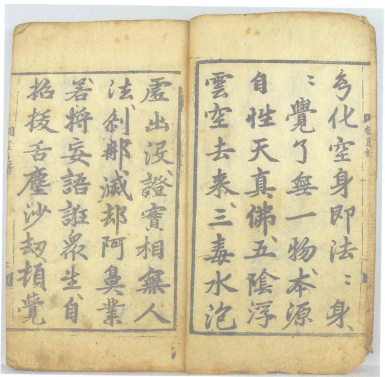 幻化空身即法〻身
〻覺了無一物本源
自性天真佛五陰浮
雲空去来三毒水泡
虛出没證實相無人
法刹那滅却阿鼻業
若将妄語誑衆生自
招拔舌塵沙劫頓覺